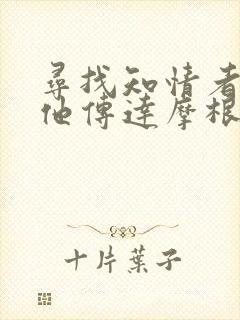 尋找知情者
他傳達摩根
十片葉子